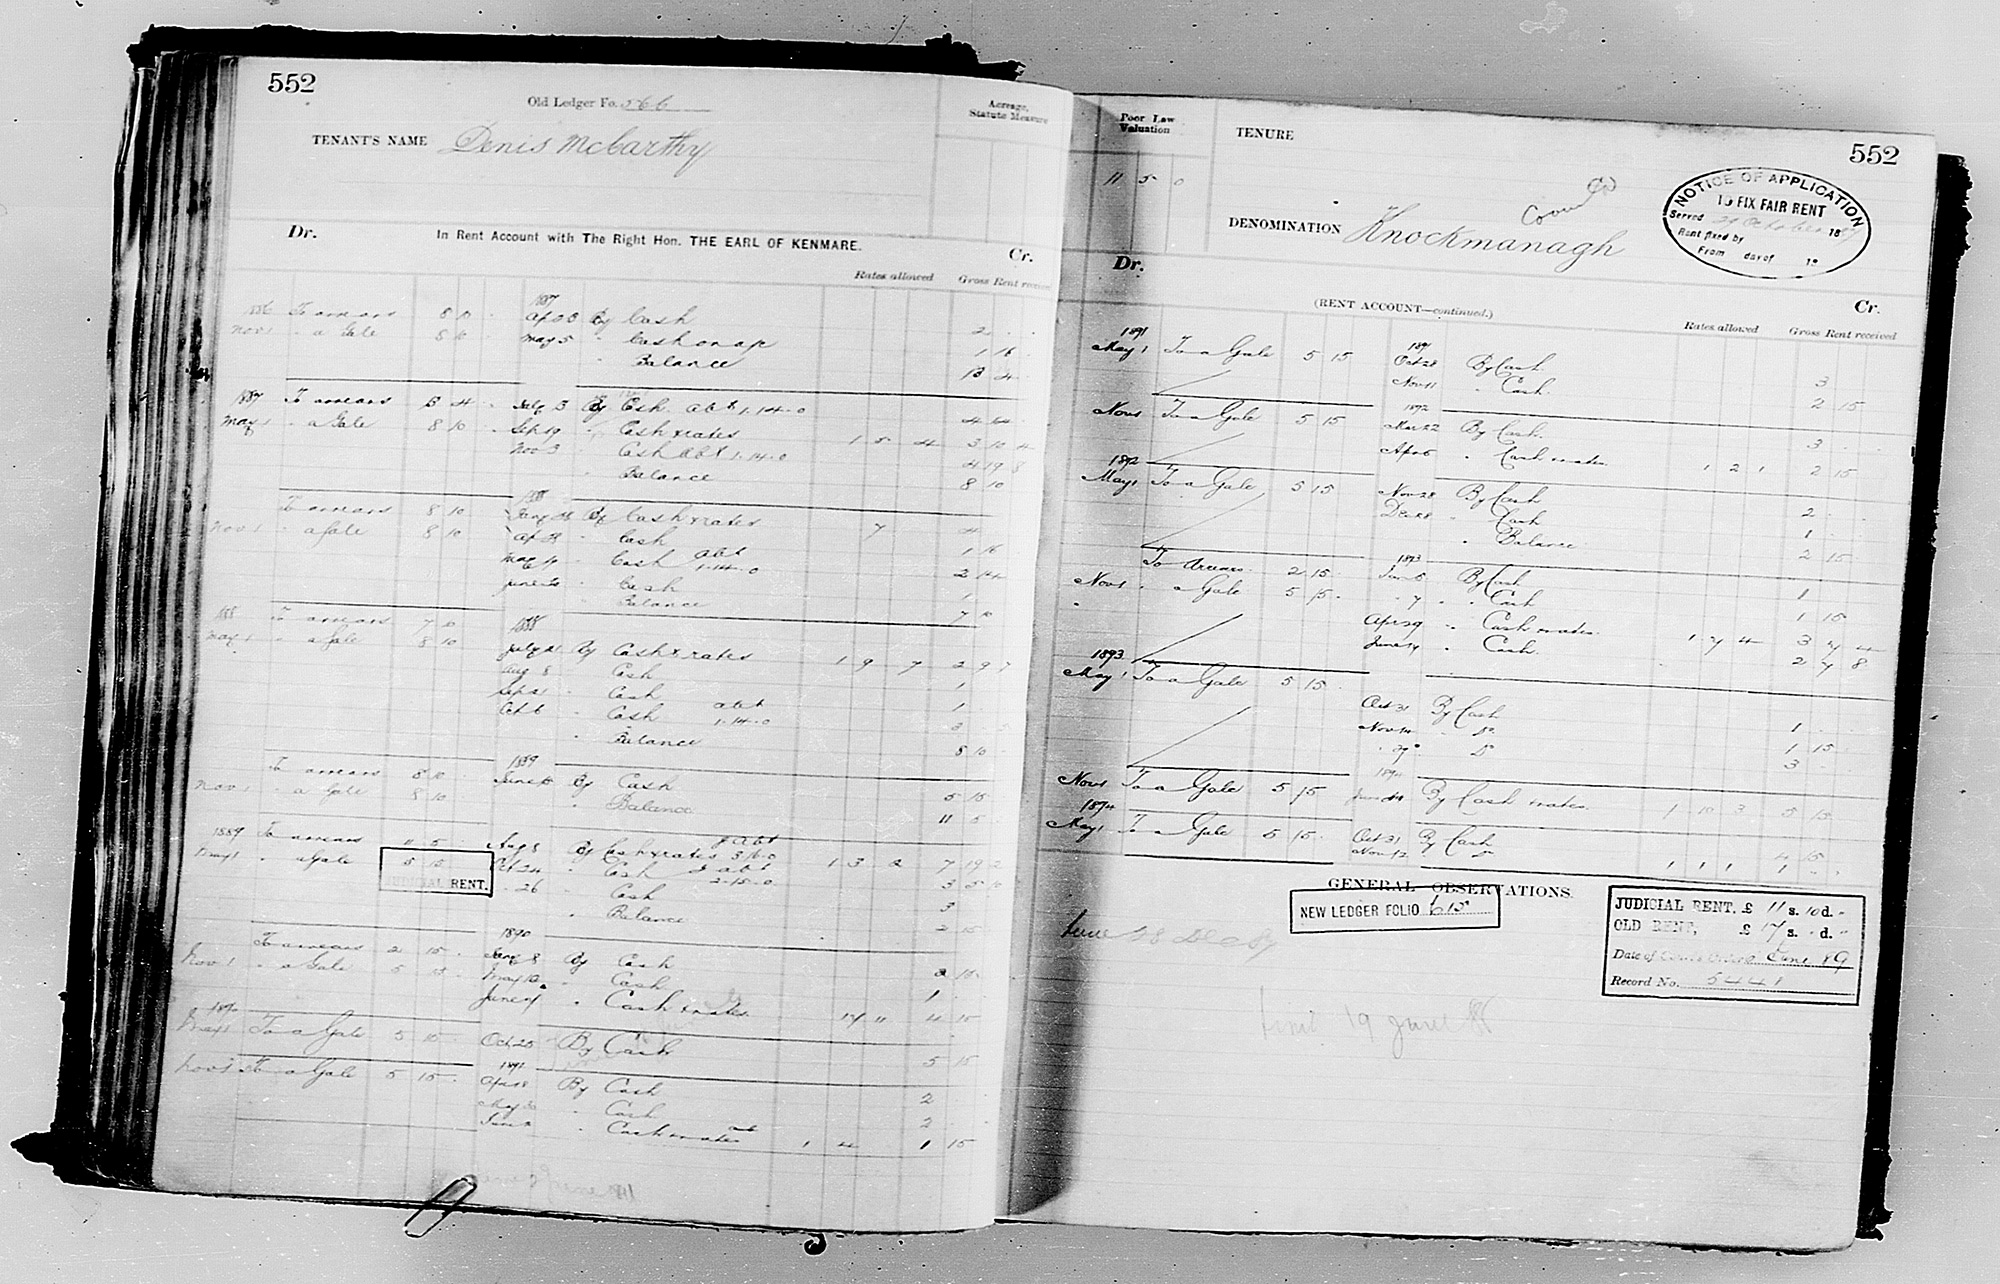 552
Old Ledger Fo. 566
Acreage, Statute Measure
TENANT'S NAME Denis McCarthy
Dr. In Rent Account with The Right Hon. THE EARL OF KENMARE. Cr.
Rates allowed Gross Rent
1887
To arrears 8 10 By Cash 2
Nov 1 " a Gale 8 10 May 5 " Cash on a/c 1 16
" Balance 13 4
1887 To arrears 13 4 July By Cash abt 1.14.0 4 14
May 1 " a Gale 8 10 Sep 19 " Cash & rates 1 5 4 3 10 4
Nov 3 " Cash abt 1.14.0 4 19 8
" Balance 8 10
1888
To arrears 8 10 By Cash & rates 7 4
Nov 1 " a Gale 8 10 " Cash 1 16
" Cash abt 1.14.0 2 14
June " Cash 1
Balance 7 10
1888 To arrears 7 10 1888
May 1 " a Gale 8 10 July By Cash & rates 1 9 7 2 9 7
Aug 8 " Cash 1
Sept " Cash 1
Oct 6 " Cash abt 1.14.0 3
" Balance 8 10
1889
To arrears 8 10 June By Cash 5 15
Nov 1 " a Gale 8 10 " Balance 11 5
1889 To arrears 11 5 Aug 8 By Cash & rates & abt 3 1 3 2 7 19 2
May 1 " a Gale 5 15 Oct 24 " Cash & abt 2.15.0 3 5 10
JUDICIAL RENT.
" 26 " Cash 3
" Balance 2 15
1890
To arrears 2 15 By Cash 2 15
Nov 1 " a Gale 5 15 May " Cash 1
June " Cash & rates 17 11 4 15
1890
May 1 To a Gale 5 15 Oct 25 By Cash 5 15
1891
Nov 1 To a Gale 5 15 Apr By Cash 2
May " Cash 2
June " Cash & rates 1 4 1 15
Poor Law Valuation
11 5 0
TENURE
552
DENOMINATION Knockmanagh
NOTICE OF APPLICATION
TO FIX FAIR RENT
Served October 18
Rent fixed by
From day of 18
Dr. (RENT ACCOUNT—continued.) Cr.
Rates allowed Gross Rent received
1891 1891
May 1 To a Gale 5 15 Oct 28 By Cash 3
Nov 11 " Cash 2 15
1892
Nov 1 To a Gale 5 15 Mar 22 By Cash 3
Apr 5 " Cash & rates 1 2 1 2 15
1892
May 1 To a Gale 5 15 Nov 28 By Cash 2
Dec " Cash 1
" Balance 2 15
1893
To Arrears 2 15 Jan 5 By Cash 1
Nov 1 " a Gale 5 15 " 7 " Cash 1 15
Apr 29 " Cash & rates 1 7 4 3 7 4
June 14 " Cash 2 7 8
1893
May 1 To a Gale 5 15 Oct 31 By Cash 1
Nov 14 " Do 1 15
" 29 " Do 3
1894
Nov 1 To a Gale 5 15 June By Cash & rates 1 10 3 5 15
1894
May 1 To a Gale 5 15 Oct 31 By Cash 4 15
Nov 12 " Do 1 1 1 1
GENERAL OBSERVATIONS.
NEW LEDGER FOLIO 615
JUDICIAL RENT. £ 11 s. 10 d. -
OLD RENT, £ 17 s. - d. -
Date of Court Order June 89
Record No. 5441
time 19 June 88